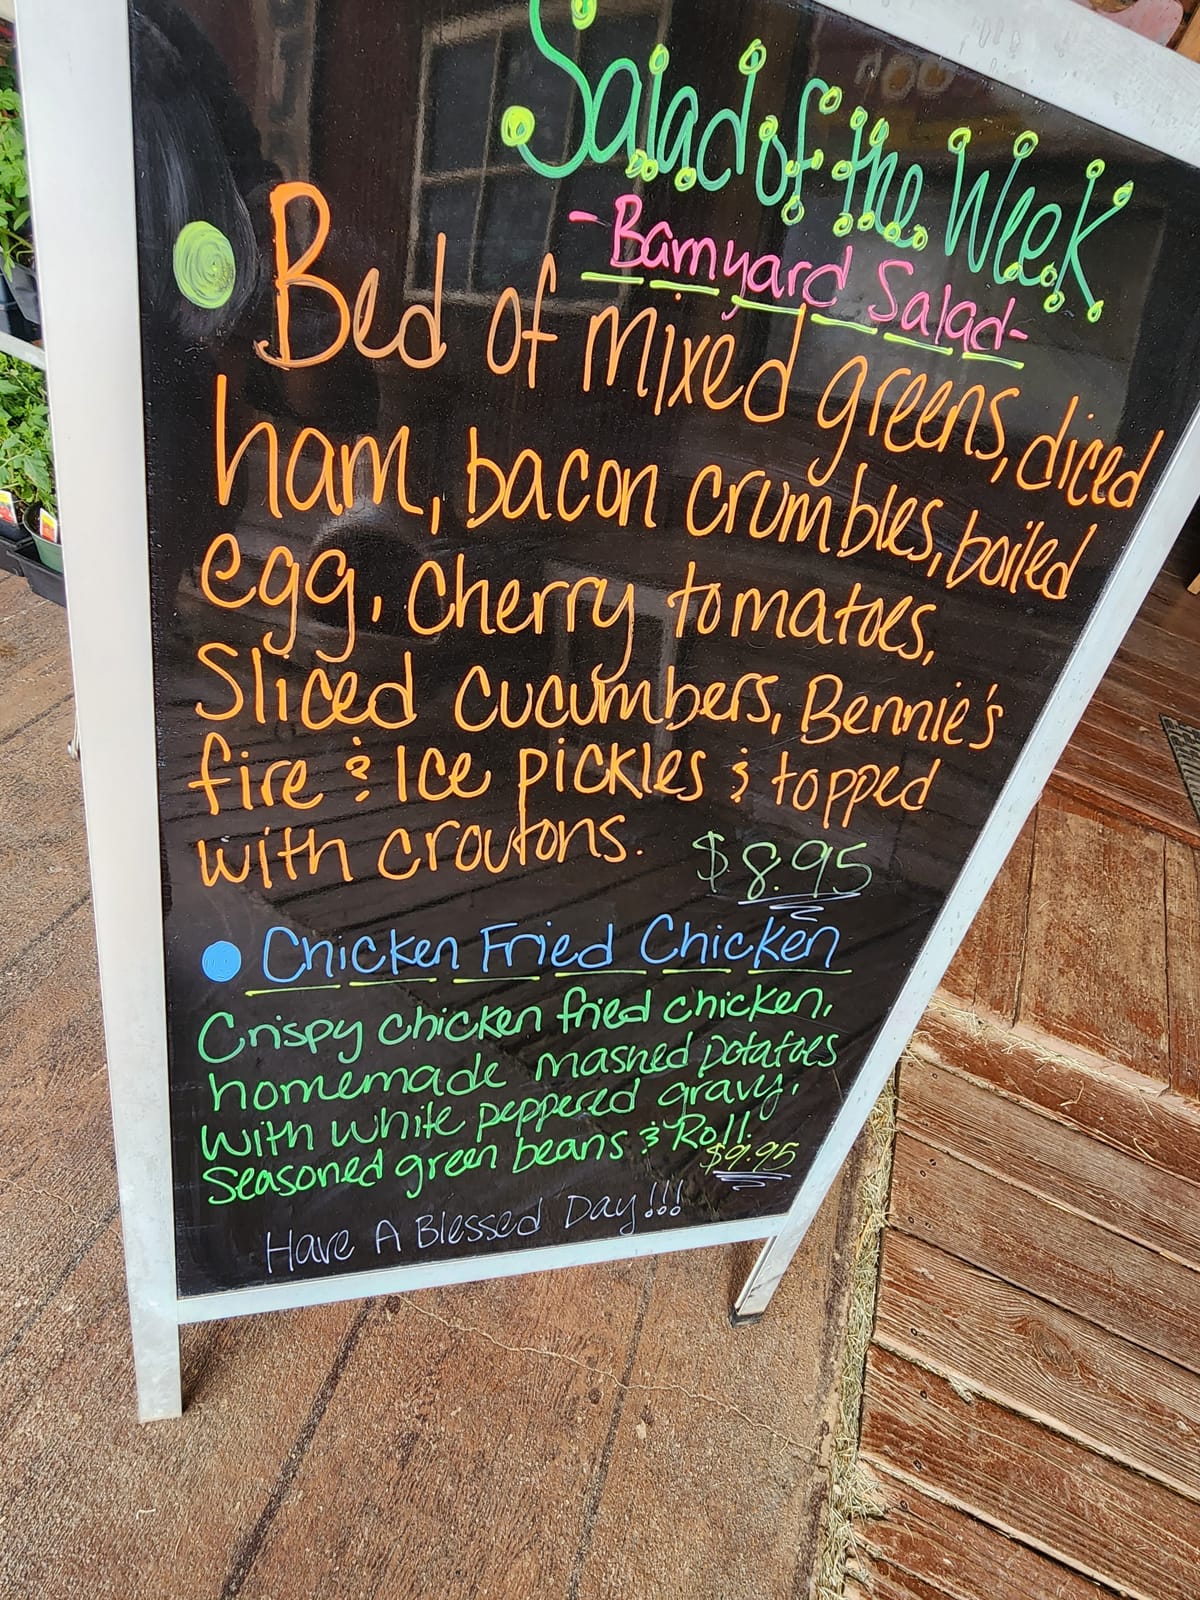 Salad of the Week
-Barnyard Salad-
Bed of mixed greens, diced
ham, bacon crumbles, boiled
egg, cherry tomatoes,
Sliced cucumbers, Bennie's
fire & Ice pickles & topped
with croutons.
$8.95
Chicken Fried Chicken
Crispy chicken fried chicken,
homemade mashed potatoes
with white peppered gravy,
seasoned green beans & Roll.
$9.95
Have A Blessed Day!!!